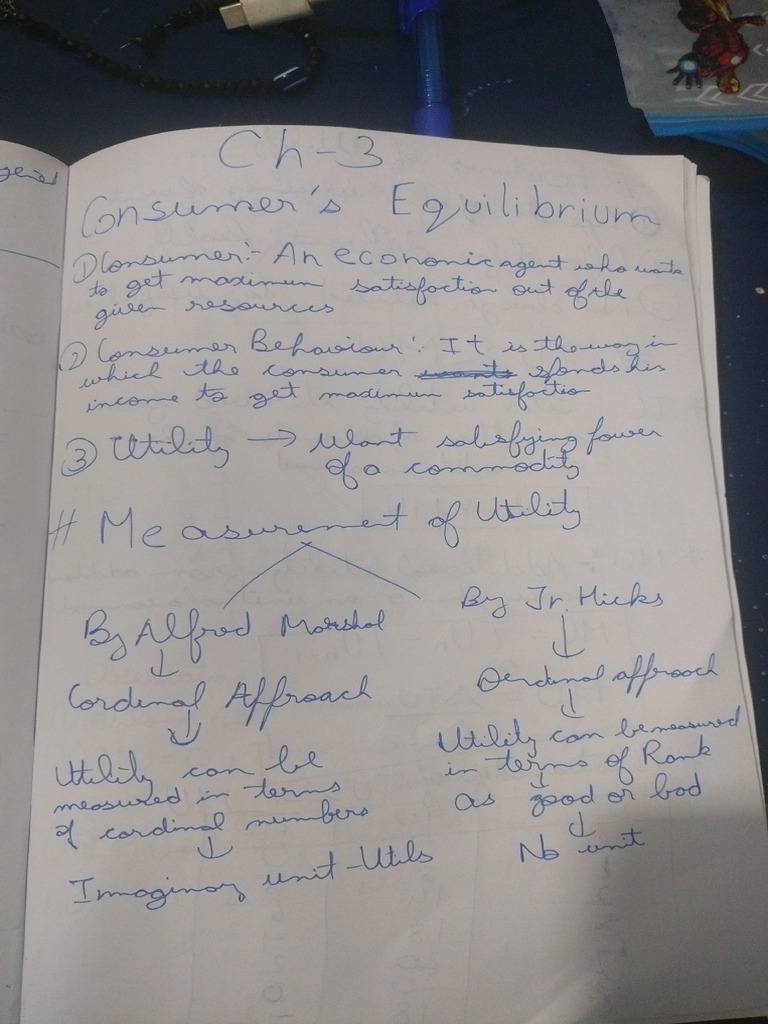 Ch-3
Consumer's Equilibrium
① Consumer:- An economic agent who wants
to get maximum satisfaction out of the
given resources
② Consumer Behaviour:- It is the way in
which the consumer spends his
income to get maximum satisfaction
③ Utility → Want satisfying power
of a commodity
# Measurement of Utility
By Alfred Marshal
↓
Cardinal Approach
↓
Utility can be
measured in terms
of cardinal numbers
↓
Imaginary unit - Utils
By Jr. Hicks
↓
Ordinal approach
↓
Utility can be measured
in terms of Rank
↓
as good or bad
↓
No unit